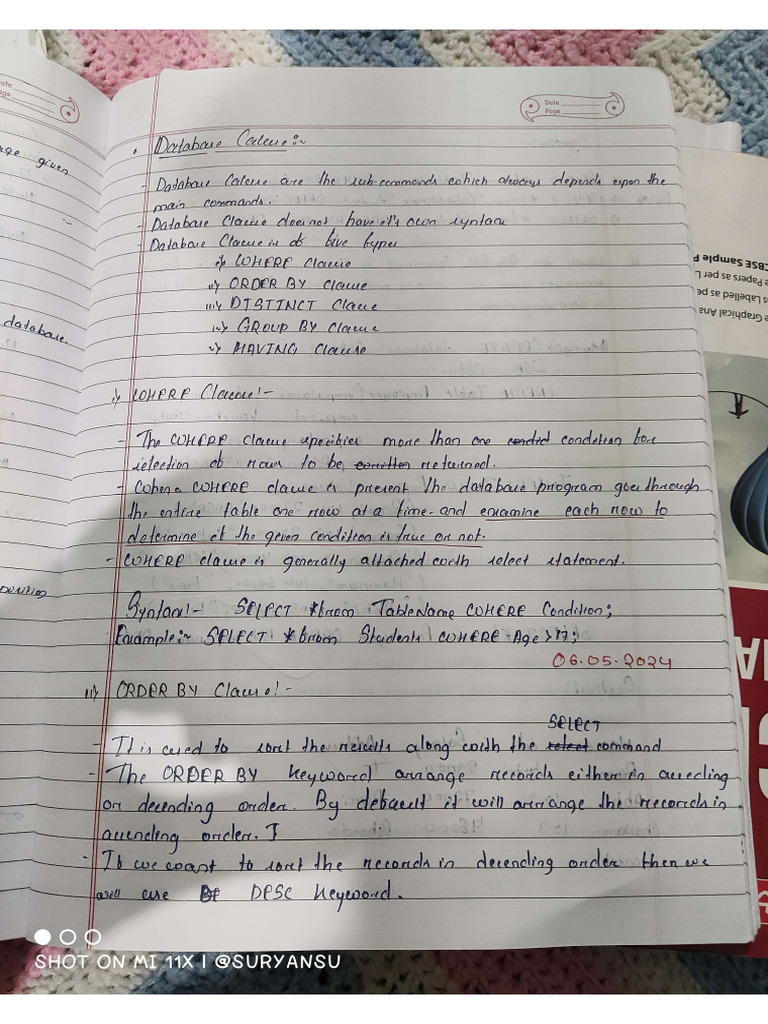 Date
Page
Date
Page
• Database Calcue:~
- Database Calcue are the sub-commands which always depends upon the
main commands.
- Database Clause does not have it's own syntax
- Database Clause is of five types
i) WHERE Clause
ii) ORDER BY Clause
iii) DISTINCT Clause
iv) GROUP BY Clause
v) HAVING Clause
i) WHERE Clause:-
- The WHERE clause specifies more than one condition for
selection of rows to be returned.
- When a WHERE clause is present the database program goes through
the entire table one row at a time and examine each row to
determine if the given condition is true or not.
- WHERE clause is generally attached with select statement.
Syntax:- SELECT * from TableName WHERE Condition;
Example:~ SELECT * from Students WHERE Age > 17;
06.05.2024
ii) ORDER BY Clause:-
SELECT
- It is used to sort the results along with the select command
- The ORDER BY keyword arrange records either in assecding
or decending order. By default it will arrange the records in
assending order. I
- If we want to sort the records in decending order then we
will use DESC keyword.
given
database.
CBSE Sample P
Papers as per L
Labelled as pe
Graphical Ana
SHOT ON MI 11X | @SURYANSU